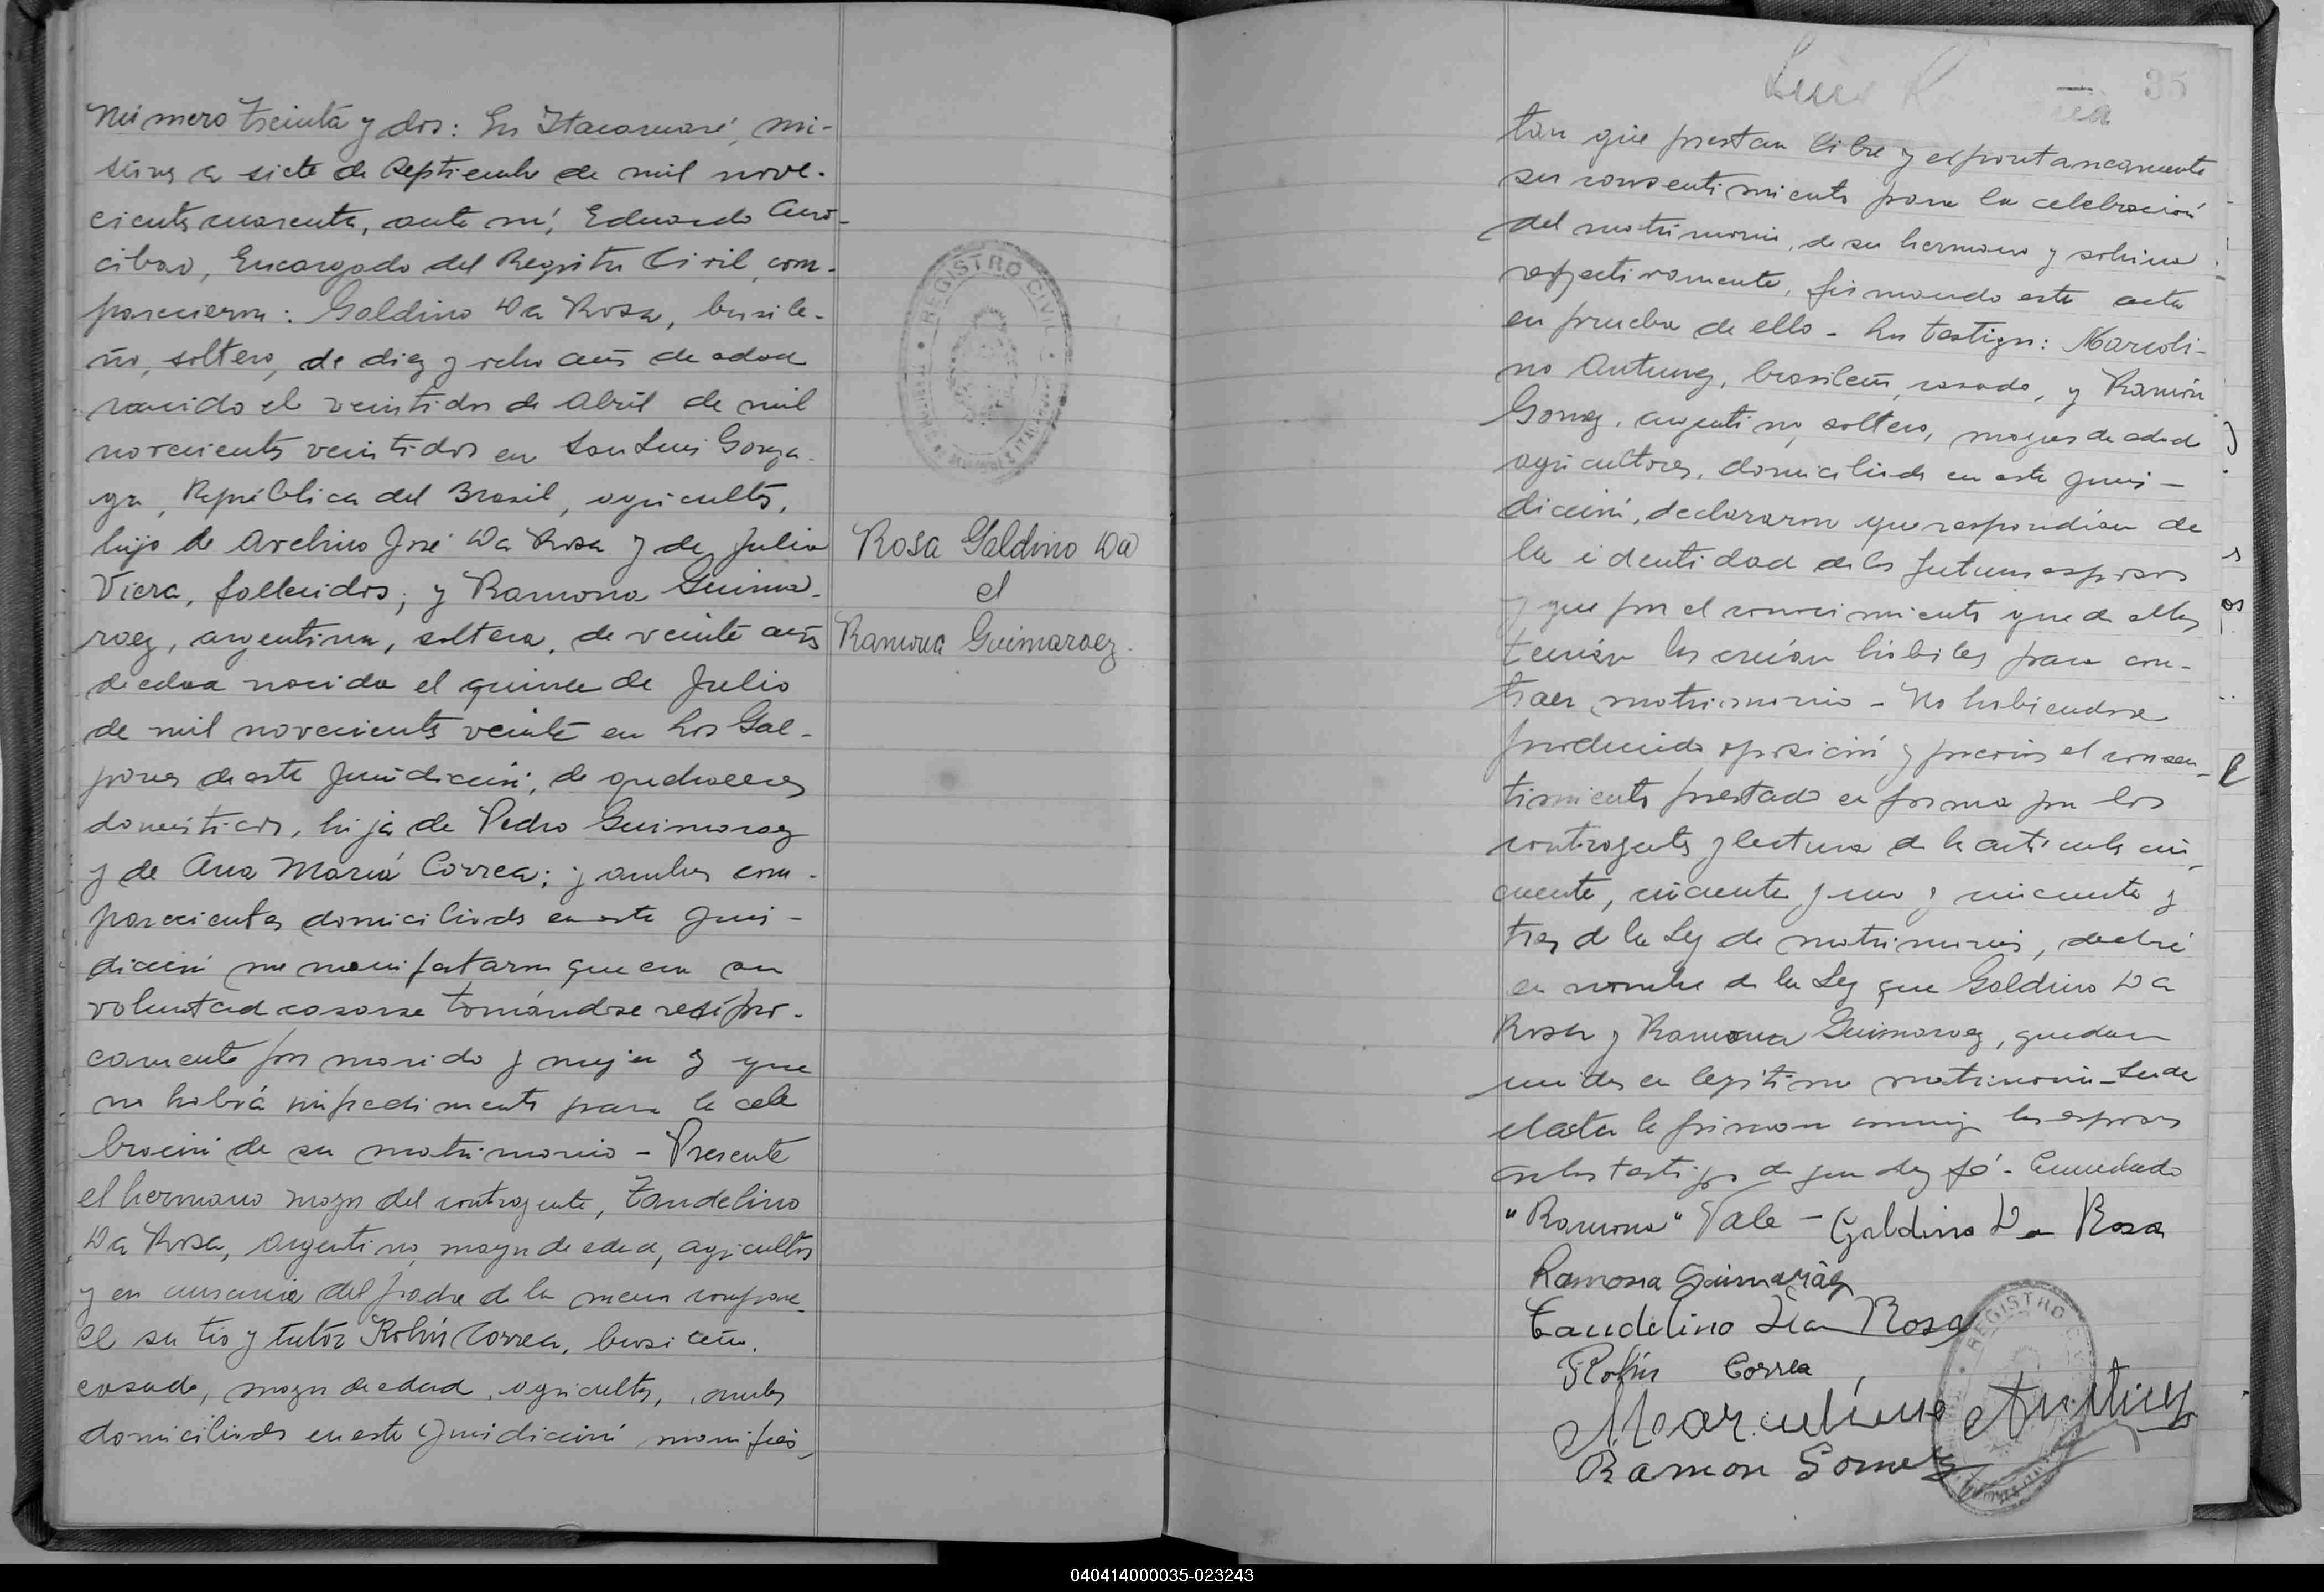 Número Treinta y dos: En Itacaruaré, mi-
siones a siete de Septiembre de mil nove-
cientos cuarenta, ante mí, Eduardo
cibar, Encargado del Registro Civil, com-
parecieron: Galdino Da Rosa, brasile-
ño, soltero, de diez y ocho años de edad
nacido el veintidos de Abril de mil
novecientos veintidos en San Luis Gonza-
ga, República del Brasil, agricultor,
hijo de Avelino José Da Rosa y de Julia
Viera, fallecidos; y Ramona Guima-
raez, argentina, soltera, de veinte años
de edad nacida el quince de Julio
de mil novecientos veinte en Los Gal-
pones de esta jurisdicción, de quehaceres
domésticos, hija de Pedro Guimaraez
y de Ana María Correa; y ambos com-
parecientes domiciliados en esta juris-
dicción me manifestaron que era su
voluntad casarse tomándose recípro-
camente por marido y mujer y que
no había impedimento para la cele
bración de su matrimonio - Presente
el hermano mayor del contrayente, Tandelino
Da Rosa, Argentino, mayor de edad, agricultor
y en ausencia del padre de la menor compare-
ce su tio y tutor Robin Correa, brasileño,
casado, mayor de edad, agricultor, ambos
domiciliados en esta jurisdicción, manifies-
Rosa Galdino Da
el
Ramona Guimaraez.
REGISTRO CIVIL
35
Luis
tan que prestan libre y espontaneamente
su consentimiento para la celebración
del matrimonio, de su hermano y sobrina
respectivamente, firmando esta acta
en prueba de ello - Los testigos: Marcoli-
no Antunez, brasileño, casado, y Ramón
Gomez, argentino, soltero, mayores de edad
agricultores, domiciliados en esta juris-
dicción, declararon que respondían de
la identidad de los futuros esposos
y que por el conocimiento que de ellos
tenían los creían hábiles para con-
traer matrimonio - No habiendose
producido oposición y previo el consen-
timiento prestado en forma por los
contrayentes y lectura de los artículos cin-
cuenta, cincuenta y uno y cincuenta y
tres de la Ley de matrimonio, declaré
en nombre de la Ley que Galdino Da
Rosa y Ramona Guimaraez, quedan
unidos en legítimo matrimonio - Leida
el acta la firmaron conmigo los esposos
los testigos de que doy fé - Enmendado
"Ramona" Vale - Galdino Da Rosa
Ramona Guimaráez
Tandelino Da Rosa
Robin Correa
Marculino Antunez
Ramon Gomez
REGISTRO
040414000035-023243